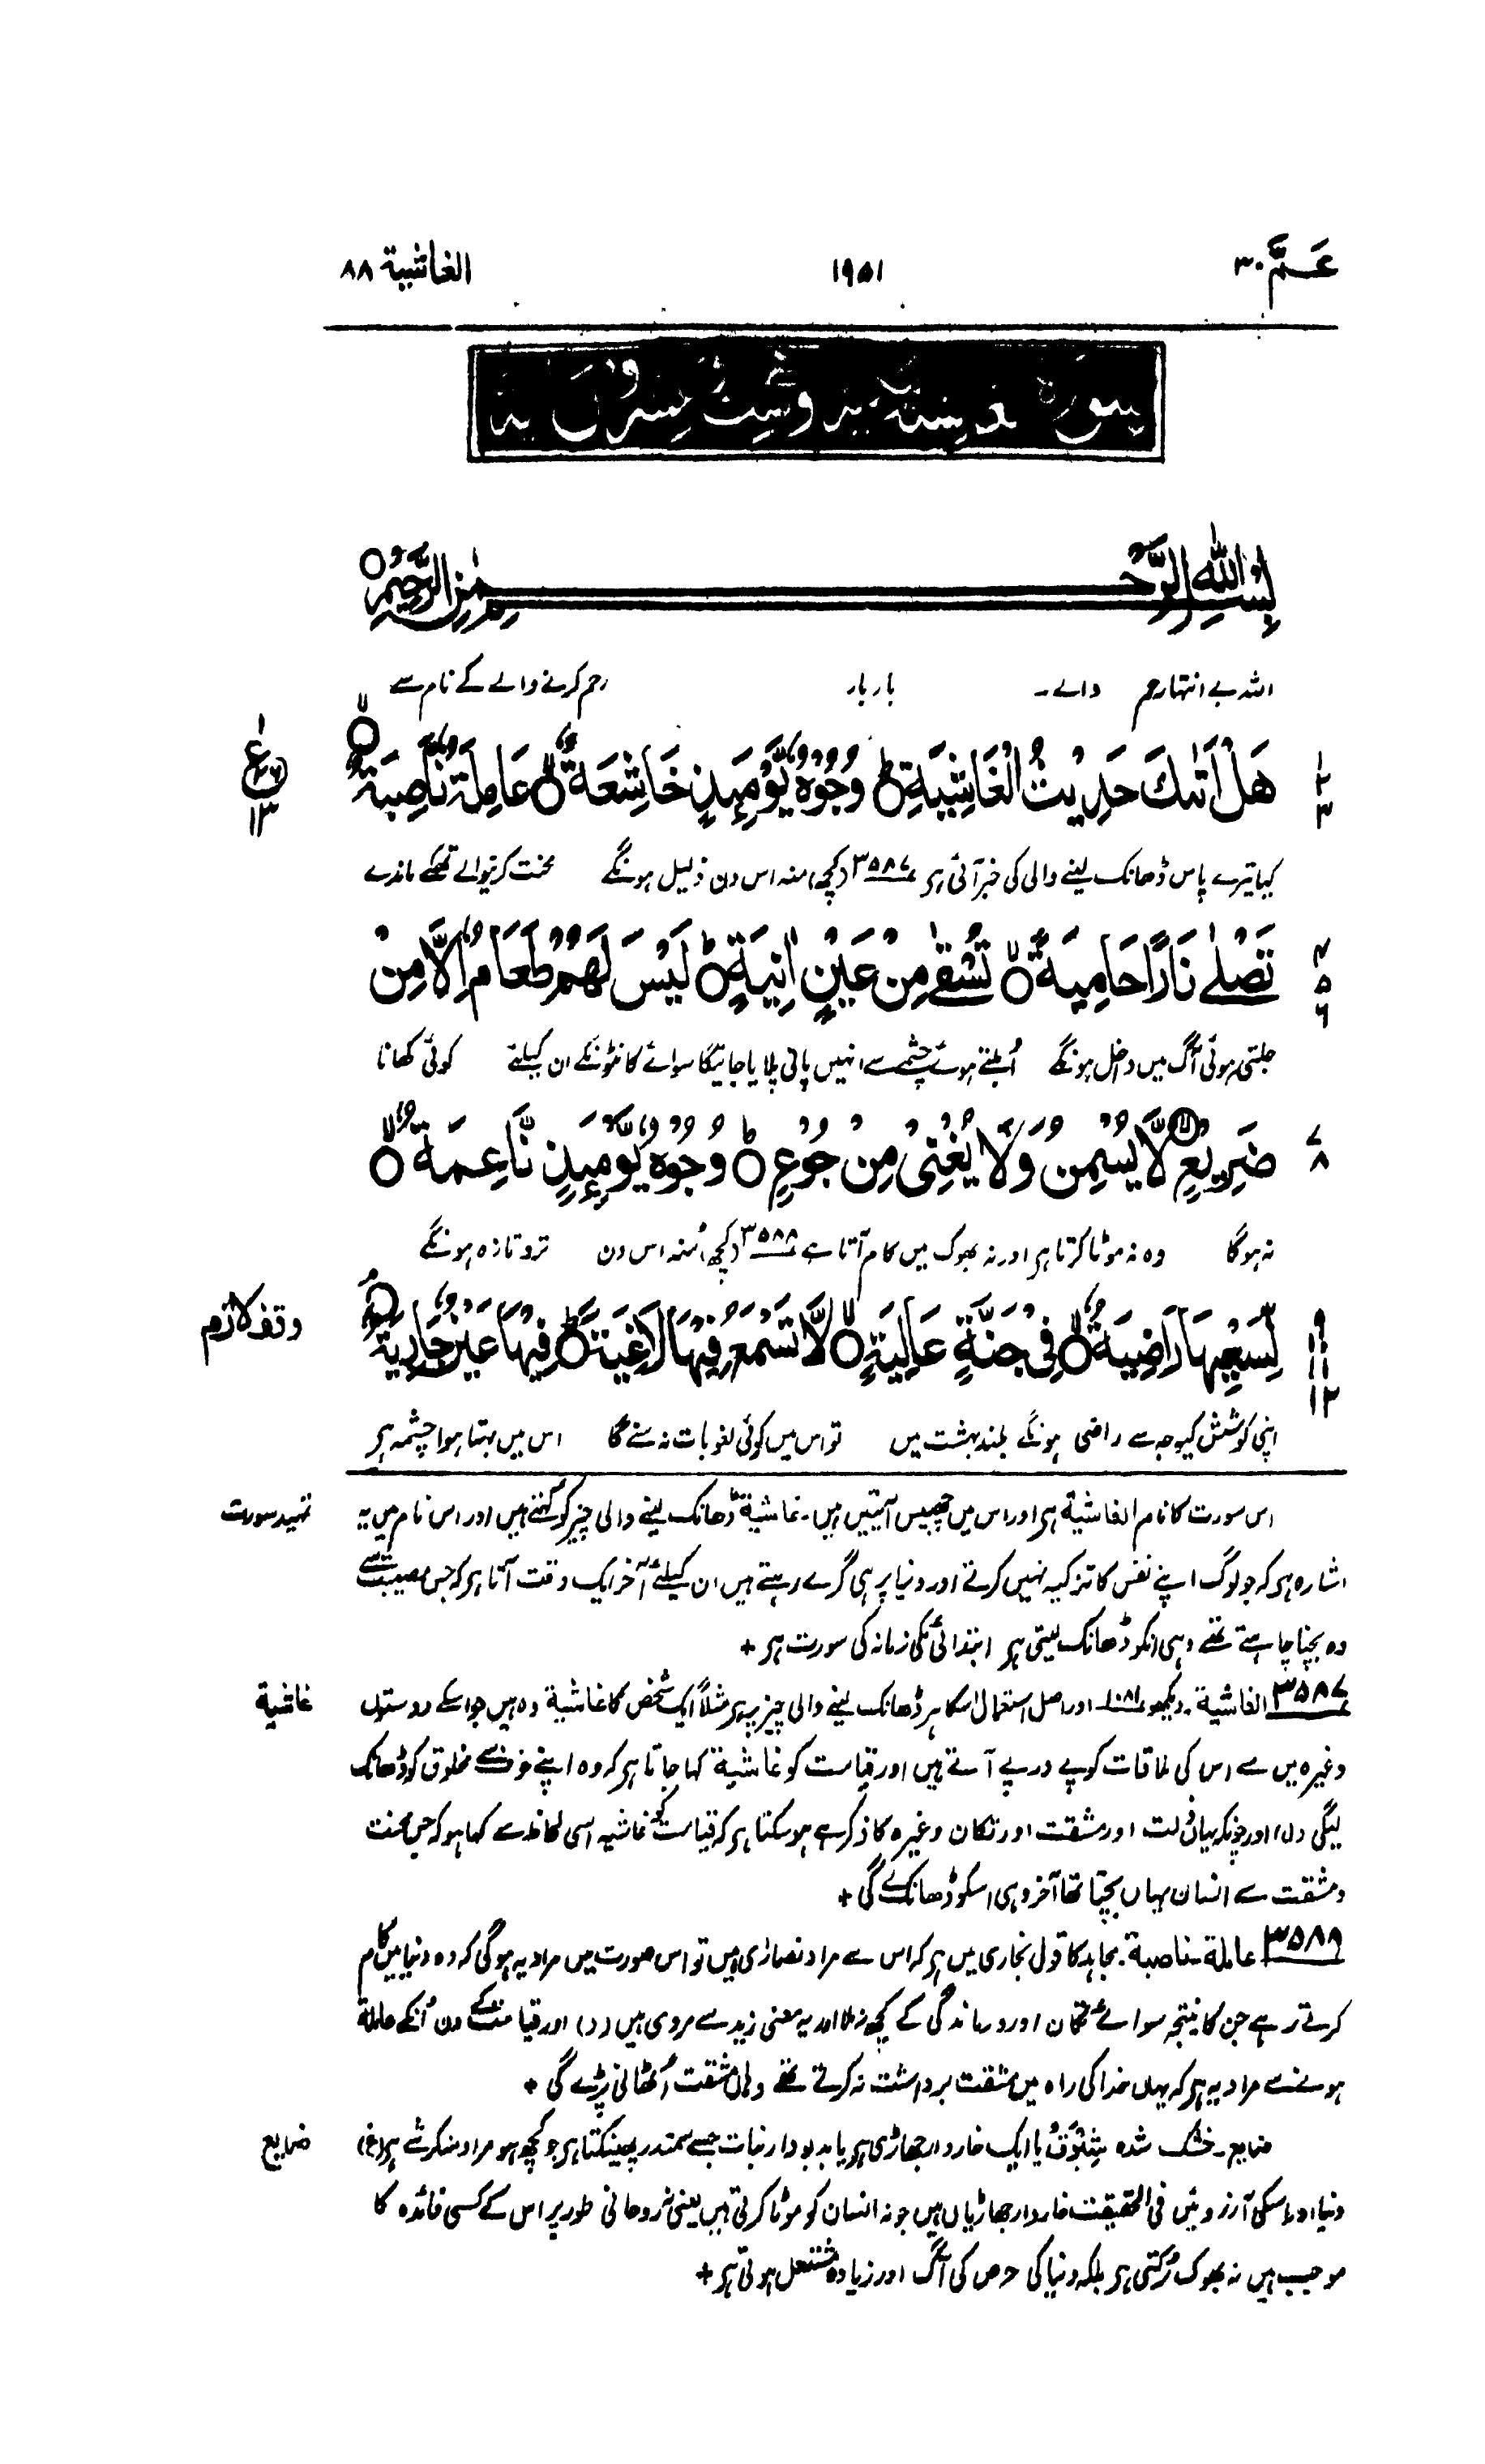 عَـمَّ ٣٠
١٩٥١
الغاشية ٨٨
بِسْمِ اللهِ الرَّحْمٰنِ الرَّحِيْمِ
اللہ بے انتہا رحم والے۔ بار بار رحم کرنے والے کے نام سے
هَلْ اَتٰىكَ حَدِيْثُ الْغَاشِيَةِ وُجُوْهٌ يَّوْمَىِٕذٍ خَاشِعَةٌ عَامِلَةٌ نَّاصِبَةٌ
٢
٣
ع
١٣
کیا تیرے پاس ڈھانک لینے والی کی خبر آئی ہر ٣٥٨٧ (کچھ) منہ اس دن ذلیل ہونگے محنت کرنیوالے تھکے ماندے
تَصْلٰى نَارًا حَامِيَةً تُسْقٰى مِنْ عَيْنٍ اٰنِيَةٍ لَيْسَ لَهُمْ طَعَامٌ اِلَّا مِنْ
٤
٥
٦
جلتی ہوئی آگ میں داخل ہونگے اُبلتے ہوئے چشمے سے انہیں پانی پلایا جائیگا سوائے کانٹوں کے ان کیلئے کوئی کھانا
ضَرِيْعٍ لَّا يُسْمِنُ وَلَا يُغْنِىْ مِنْ جُوْعٍ وُجُوْهٌ يَّوْمَىِٕذٍ نَّاعِمَةٌ
٧
٨
نہ ہوگا وہ نہ موٹا کرتا ہر اور نہ بھوک میں کام آتا ہے ٣٥٨٨ (کچھ) مُنہ اس دن تروتازہ ہونگے
لِسَعْيِهَا رَاضِيَةٌ فِىْ جَنَّةٍ عَالِيَةٍ لَّا تَسْمَعُ فِيْهَا لَاغِيَةً فِيْهَا عَيْنٌ جَارِيَةٌ
٩
١١
١٢
وقف لازم
اپنی کوشش کیوجہ سے راضی ہونگے بلند بہشت میں تو اس میں کوئی لغو بات نہ سنے گا اس میں بہتا ہوا چشمہ ہر
اس سورت کا نام الغاشیة ہر اور اس میں چھبیس آیتیں ہیں۔ غاشیة ڈھانک لینے والی چیز کو کہتے ہیں اور اس نام میں یہ
تمہید سورت
اشارہ ہر کہ جو لوگ اپنے نفس کا تزکیہ نہیں کرتے اور دنیا پر ہی گرے رہتے ہیں ان کیلئے آخر ایک وقت آتا ہر کہ جس مصیبت سے
وہ بچنا چاہتے تھے وہی انکو ڈھانک لیتی ہر ابتدائی مکی زمانہ کی سورت ہر +
٣٥٨٧ الغاشیة۔ دیکھو اور اصل استعمال اسکا ہر ڈھانک لینے والی چیز پر ہر مثلاً ایک شخص کا غاشیة وہ ہیں جو اسکے دوستوں
غاشیة
وغیرہ میں سے اس کی ملاقات کو پے درپے آتے ہیں اور قیامت کو غاشیة کہا جاتا ہر کہ وہ اپنے خوف سے مخلوق کو ڈھانک
لیگی (ل) اور چونکہ یہاں ذلت اور مشقت اور تکان وغیرہ کا ذکر ہے ہو سکتا ہر کہ قیامت کو غاشیہ اسی لحاظ سے کہا ہو کہ جس محنت
ومشقت سے انسان یہاں بچتا تھا آخر وہی اسکو ڈھانکے گی +
٣٥٨٨ عاملة ناصبة۔ مجاہد کا قول بخاری میں ہر کہ اس سے مراد نصاریٰ ہیں تو اس صورت میں مراد یہ ہوگی کہ وہ دنیا میں کام
کرتے رہے جن کا نیتجہ سوائے تکان اور درماندگی کے کچھ نہ ملا اور یہ معنی زید سے مروی ہیں (ر) اور قیامت کے دن اُنکے عاملة
ہونے سے مراد یہ ہر کہ یہاں خدا کی راہ میں مشقت برداشت نہ کرتے تھے وہاں مشقت اُٹھانی پڑے گی +
ضریع۔ خشک شدہ شِبْرَقٌ یا ایک خاردار جھاڑی ہر یا بدبودار نبات جسے سمندر پھینکتا ہر جو کچھ ہو مراد منکر شے ہر (غ)
ضریع
دنیا اور اسکی آرزوئیں فی الحقیقت خاردار جھاڑیاں ہیں جو نہ انسان کو موٹا کرتی ہیں یعنی نہ روحانی طور پر اس کے کسی فائدہ کا
موجب ہیں نہ بھوک رُکتی ہر بلکہ دنیا کی حرص کی آگ اور زیادہ مشتعل ہوتی ہر +